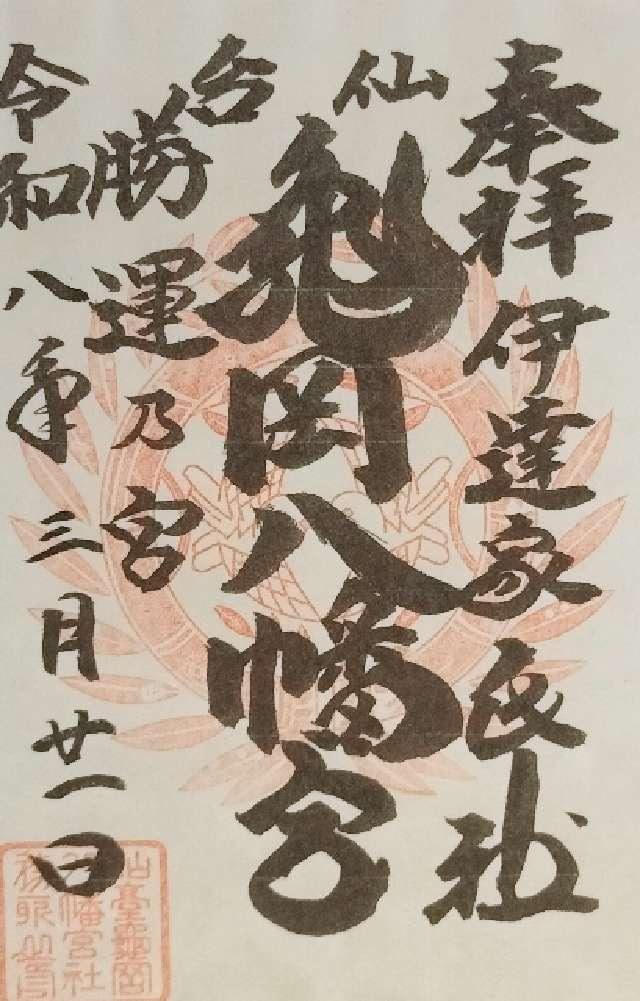 奉拝 伊達家氏社
仙台
亀岡八幡宮
勝運乃宮
令和八年三月廿一日
仙臺龜岡
八幡宮社
務所